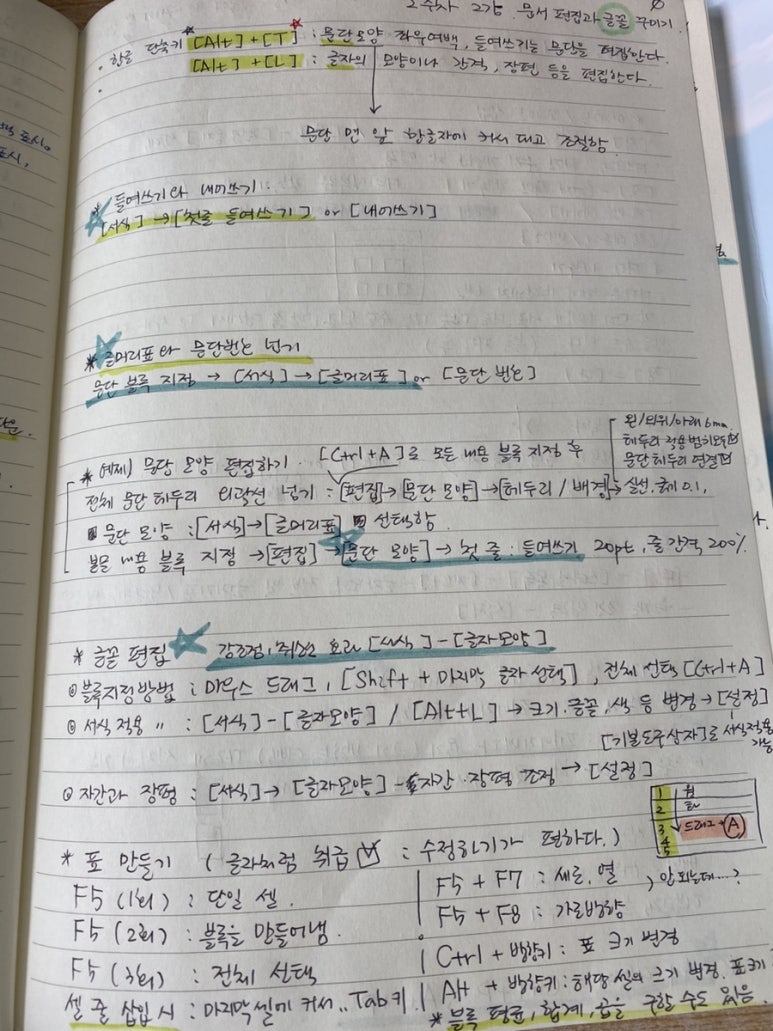 2주차 2강. 문서 편집과 글꼴 꾸미기.
· 한글 단축키 *[Alt]+[T]* : 문단모양 좌우여백, 들여쓰기등 문단을 편집한다.
[Alt]+[L] : 글자의 모양이나 간격, 장평 등을 편집한다.
문단 맨 앞 한글자에 커서 대고 조절함.
* 들여쓰기와 내어쓰기 :
[서식]→[첫줄 들여쓰기] or [내어쓰기]
* 글머리표와 문단번호 넣기
문단 블록 지정 → [서식]→[글머리표] or [문단 번호]
왼/오/위/아래 6mm.
테두리 적용범위
문단테두리 연결☑
* 예제) 문단 모양 편집하기. [Ctrl+A]로 모든 내용 블록 지정 후
전체 문단 테두리 외곽선 넣기 : [편집]→[문단 모양]→[테두리/배경]→실선, 굵기 0.1,
문단 모양 : [서식]→[글머리표] 선택함.
본문 내용 블록 지정 →[편집]→[문단 모양]→ 첫 줄·들여쓰기 20pt, 줄간격, 200%.
* 글꼴 편집 강조점, 취소선 효과 [서식]-[글자모양]
◎블록지정방법 : 마우스 드래그, [Shift + 마지막 글자 선택], 전체 선택 [Ctrl+A]
◎ 서식 적용 〃 : [서식]-[글자모양] / [Alt+L] → 크기·글꼴, 색 등 변경→[설정]
[기본도구상자]로 서식적용
가능
◎ 자간과 장평 : [서식]→[글자모양]-자간·장평 조정→[설정]
1
2
3 드래그→A
4
5
* 표 만들기 (글자처럼 취급☑ : 수정하기가 편하다.)
F5 (1회) : 단일 셀.
F5 (2회) : 블록을 만들어냄.
F5 (3회) : 전체 선택
셀 줄 삽입 시 : 마지막셀에 커서.. Tab키.
F5 + F7 : 세로, 열
F5 + F8 : 가로방향
) 안되는데...?
Ctrl + 방향키 : 표 크기 변경
Alt + 방향키 : 해당 셀의 크기 변경. 표크기
* 블록 평균, 합계, 곱을 구할 수도 있음.